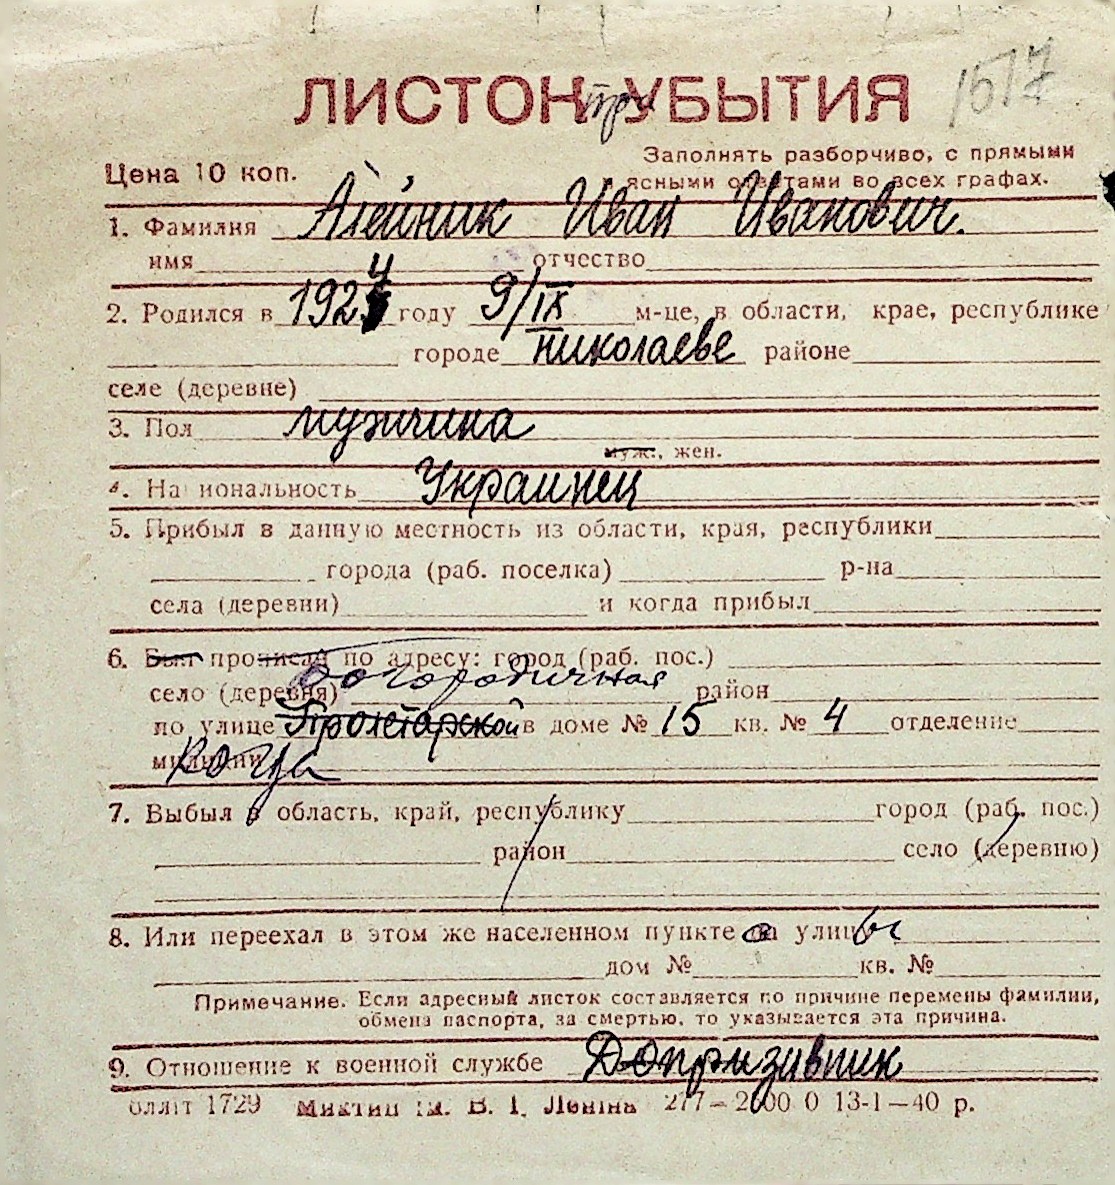 1517
ЛИСТОК при УБЫТИЯ
Цена 10 коп.
Заполнять разборчиво, с прямыми
ясными ответами во всех графах.
1. Фамилия Алейник Иван Иванович.
имя отчество
2. Родился в 1924 году 9/IX м-це, в области, крае, республике
городе Николаеве районе
селе (деревне)
3. Пол мужчина
муж., жен.
4. Национальность Украинец
5. Прибыл в данную местность из области, края, республики
города (раб. поселка) р-на
села (деревни) и когда прибыл
6. Был прописан по адресу: город (раб. пос.)
село (деревня) Богородичная район
по улице Пролетарской в доме № 15 кв. № 4 отделение
милиции
7. Выбыл в область, край, республику город (раб. пос.)
район село (деревню)
8. Или переехал в этом же населенном пункте с улицы
дом № кв. №
Примечание. Если адресный листок составляется по причине перемены фамилии,
обмена паспорта, за смертью, то указывается эта причина.
9. Отношение к военной службе Допризивник
1729 ім. В. І. Леніна 217—2000 0 13-І—40 р.